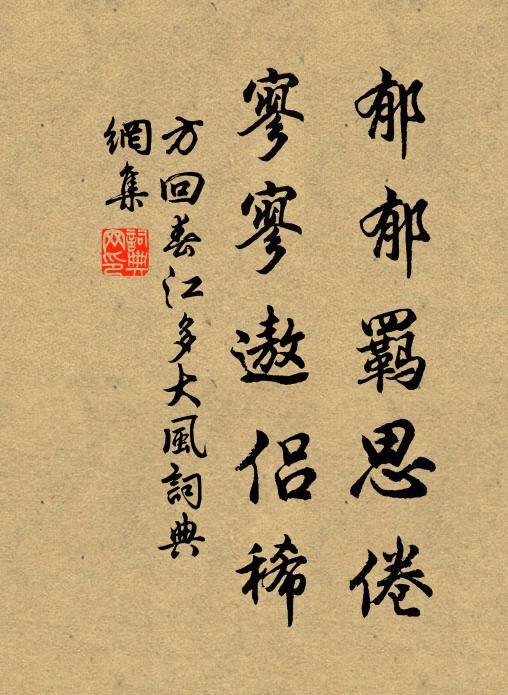 郁郁羈思倦
寥寥遨侣稀
方回春江多大風詞典
網集
詞典
网印